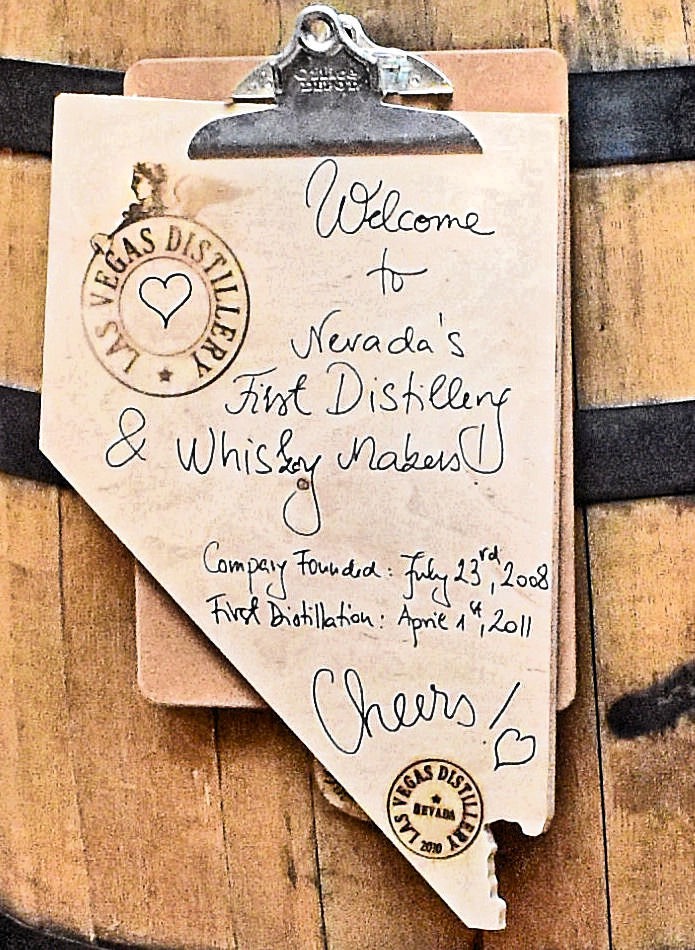 OFFICE
DEPOT
LAS VEGAS DISTILLERY
Welcome
to
Nevada's
First Distillery
& Whisky Makers!
Company Founded: July 23rd, 2008
First Distillation: April 1st, 2011
Cheers!
LAS VEGAS DISTILLERY
NEVADA
2010